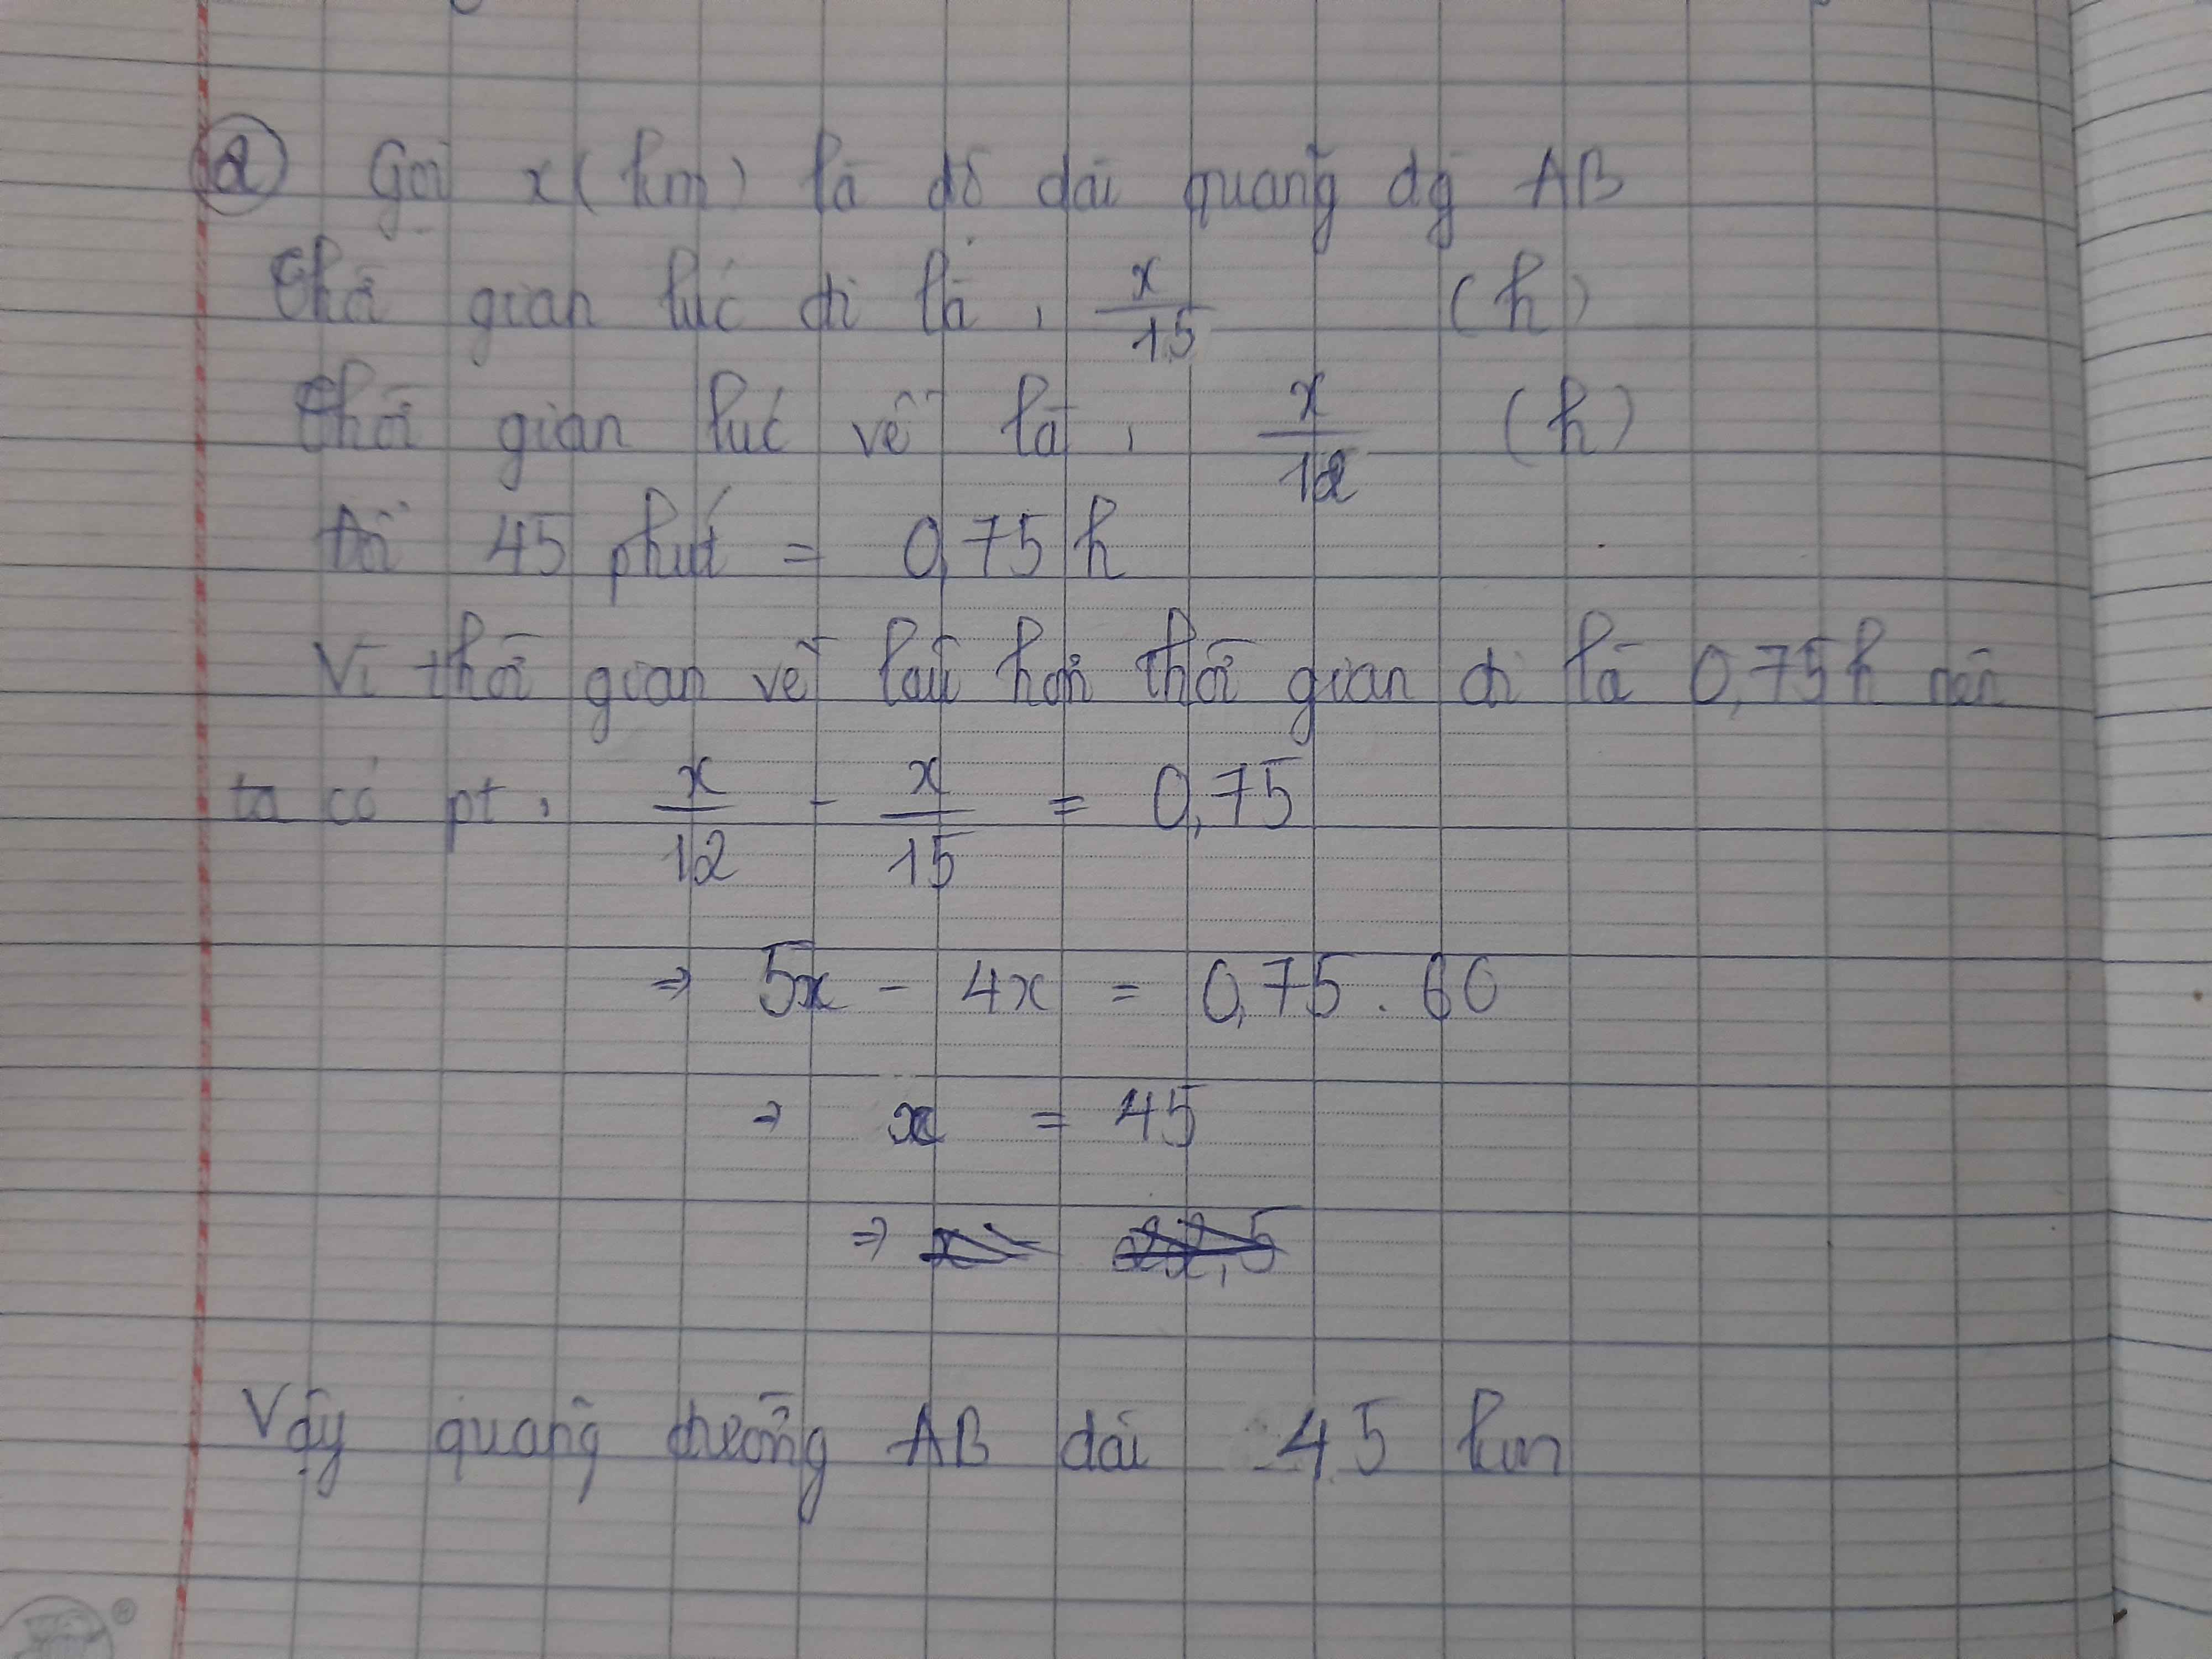 ② Gọi x (km) là độ dài quãng đg AB
Thời gian lúc đi là : x/15 (h)
Thời gian lúc về là : x/12 (h)
Đổi 45 phút = 0,75 h
Vì thời gian về lâu hơn thời gian đi là 0,75h nên
ta có pt : x/12 - x/15 = 0,75
⇒ 5x - 4x = 0,75 . 60
⇒ x = 45
⇒
Vậy quãng đường AB dài 45 km